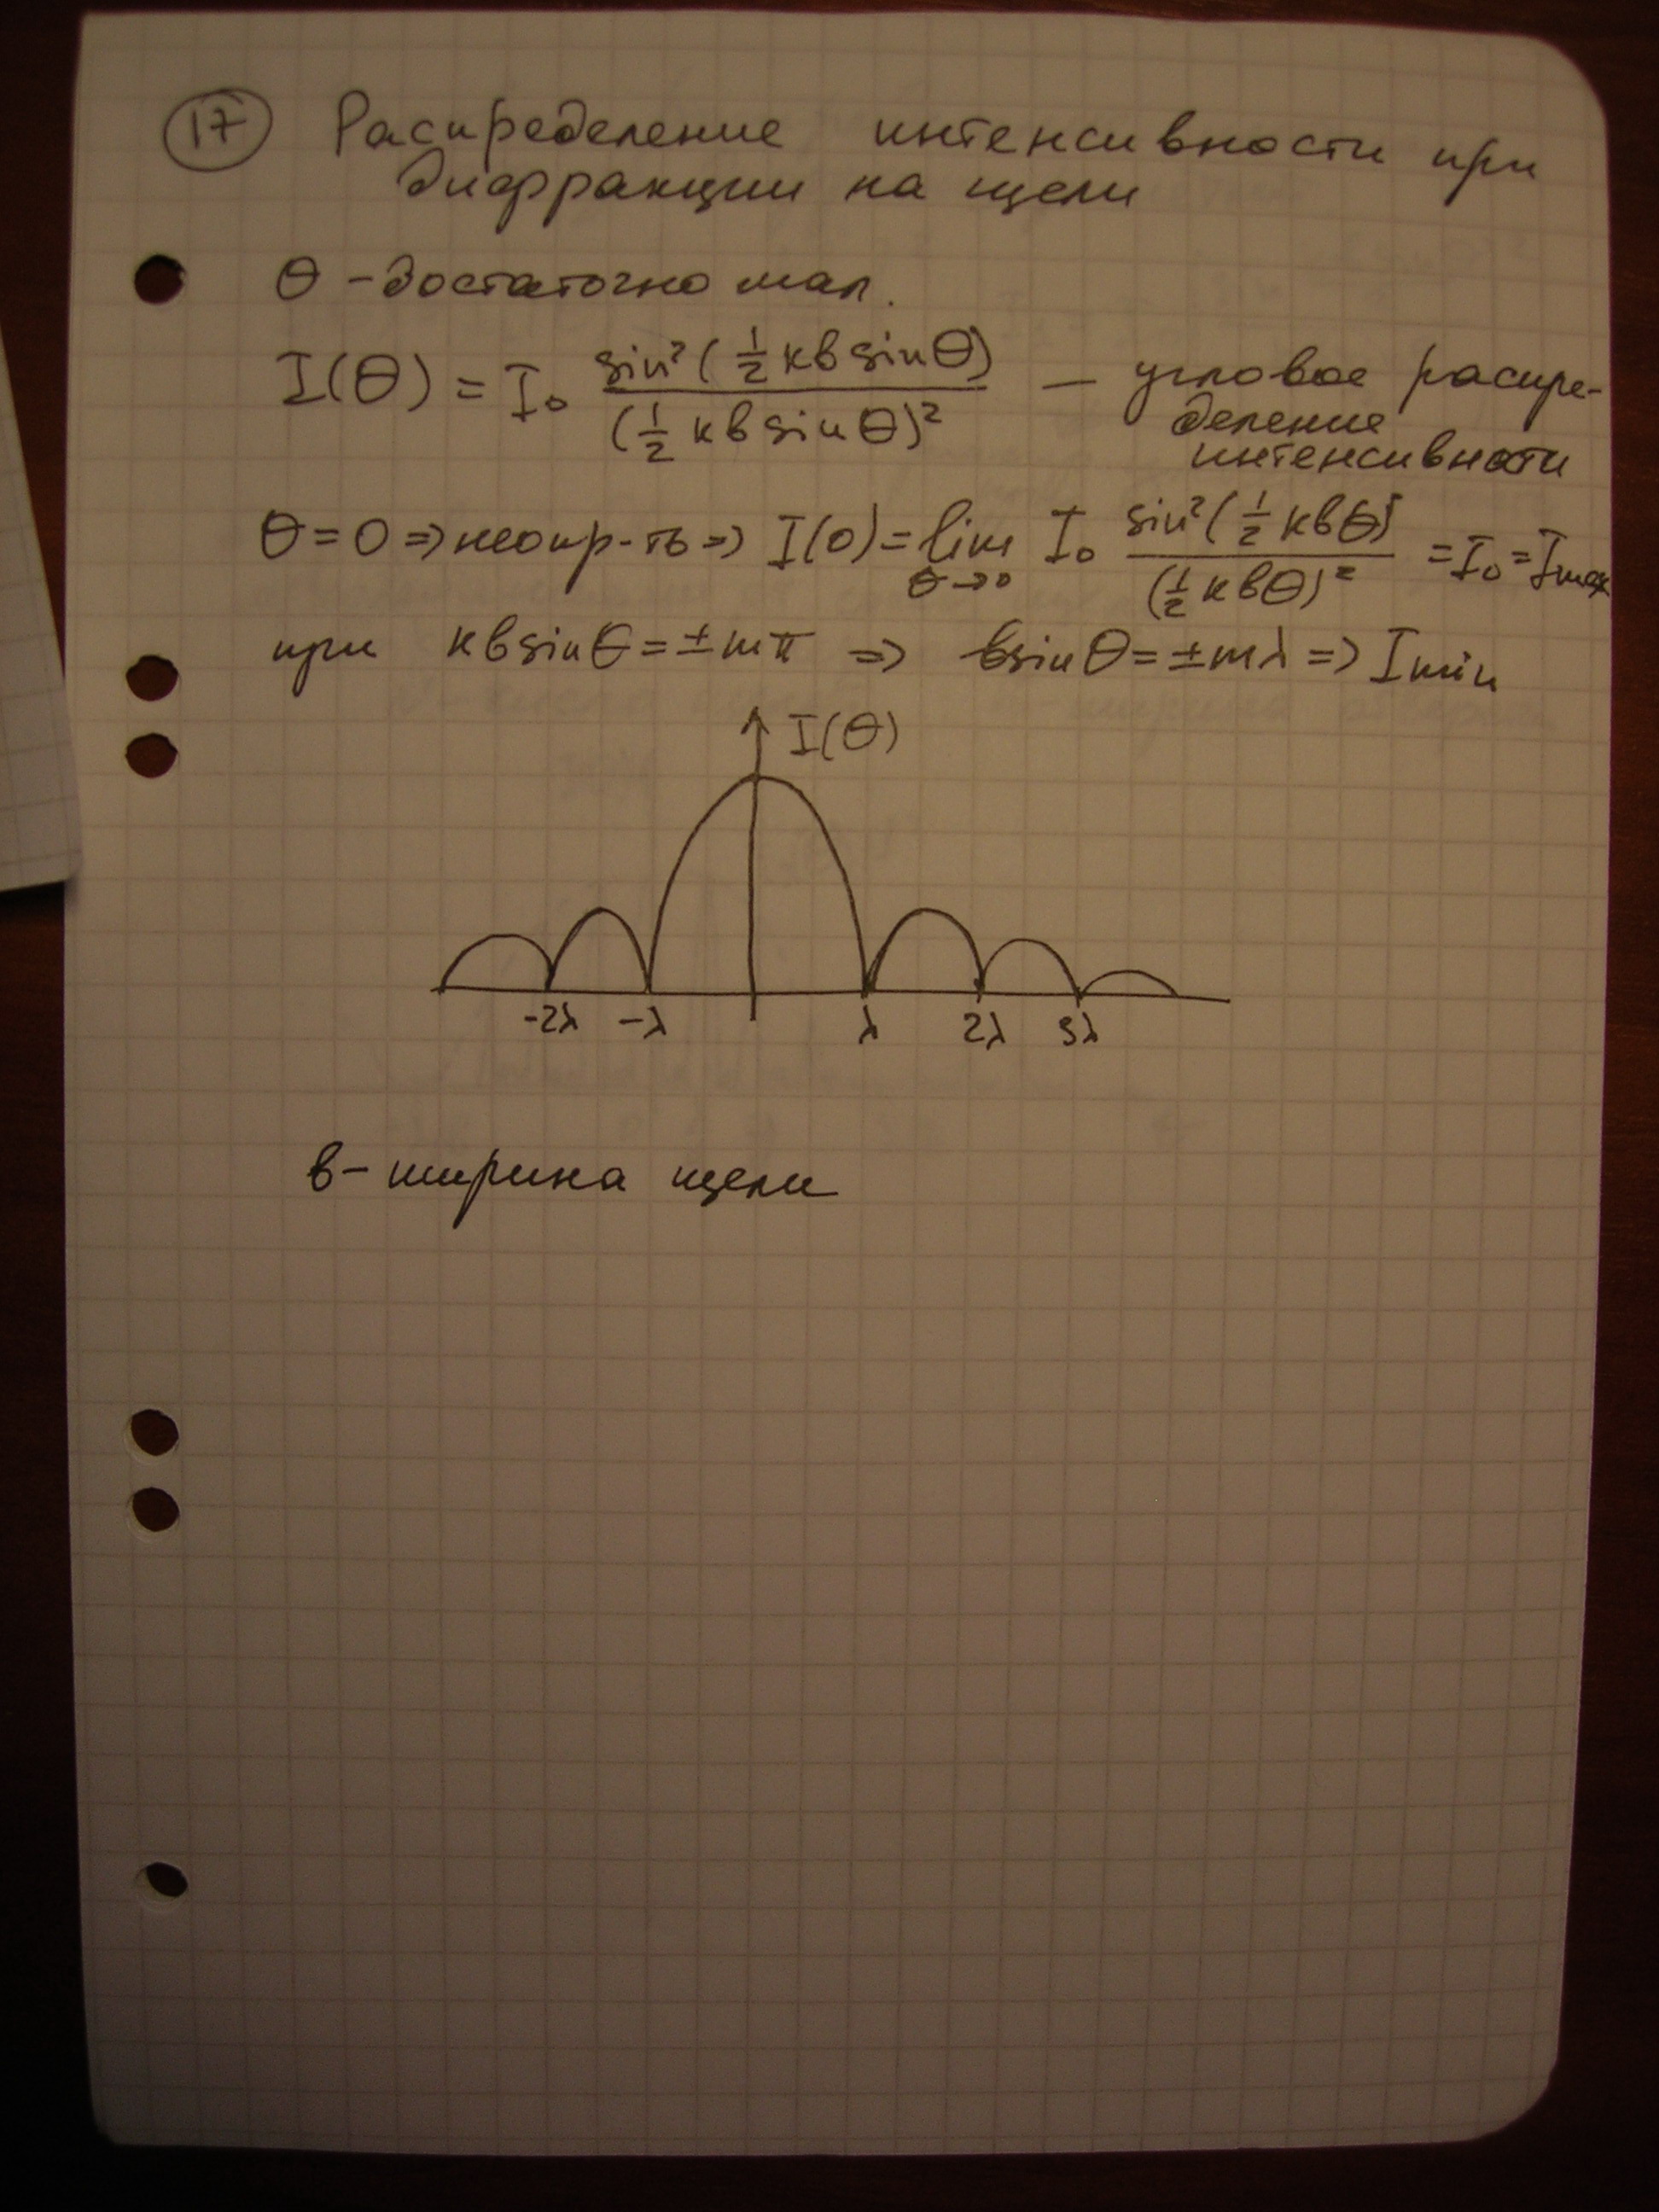 17 Распределение интенсивности при
дифракции на щели
θ – достаточно мал.
I(θ) = I₀ sin²(½ kb sinθ) / (½ kb sinθ)² — угловое распре-
деление
интенсивности
θ = 0 => неопр-ть => I(0) = lim θ→0 I₀ sin²(½ kbθ) / (½ kbθ)² = I₀ = Imax
при kb sinθ = ±mπ => b sinθ = ±mλ => Imin
I(θ)
-2λ -λ λ 2λ 3λ
b – ширина щели